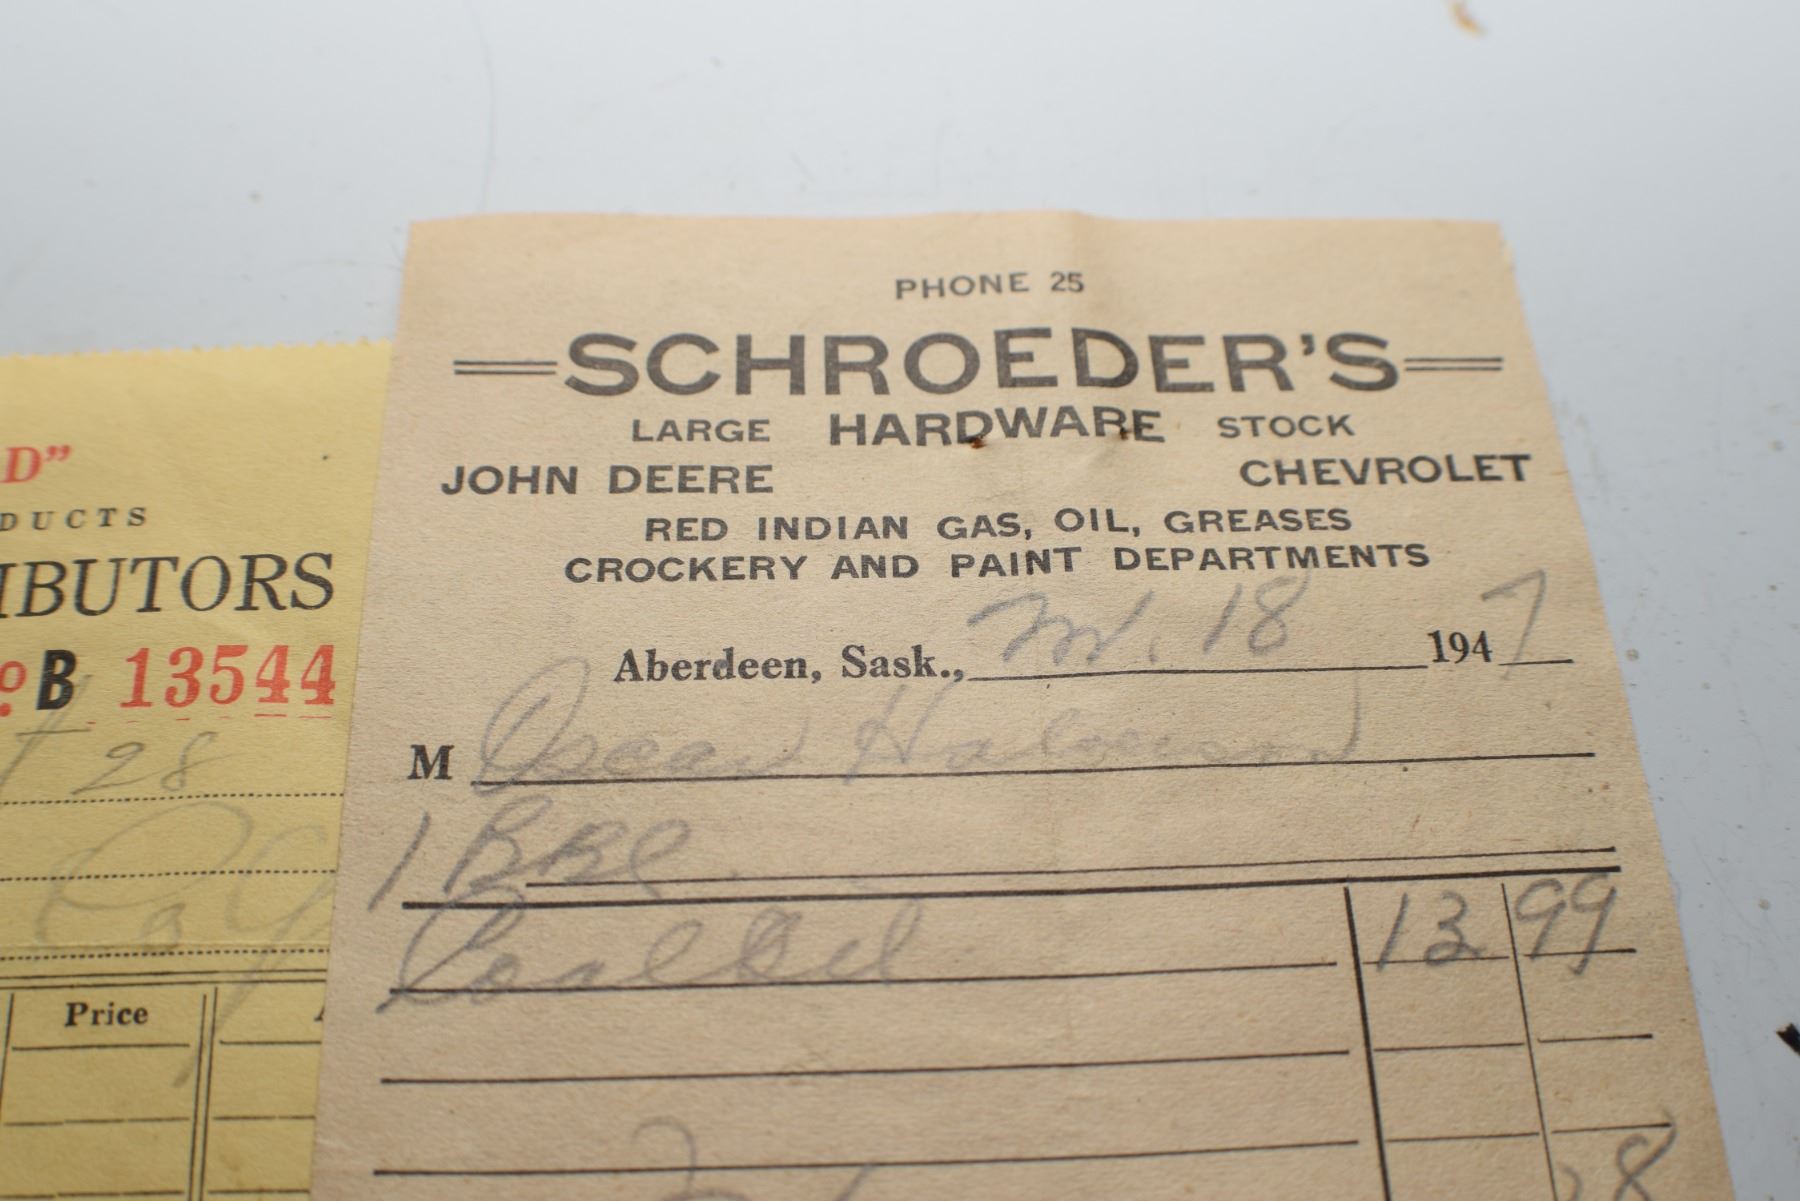 D”
DUCTS
IBUTORS
o. B 13544
28
Co
Price
PHONE 25
SCHROEDER'S
LARGE HARDWARE STOCK
JOHN DEERE CHEVROLET
RED INDIAN GAS, OIL, GREASES
CROCKERY AND PAINT DEPARTMENTS
Aberdeen, Sask., 18 1947
M Oscar
1 BBl
Coal Oil 13 99